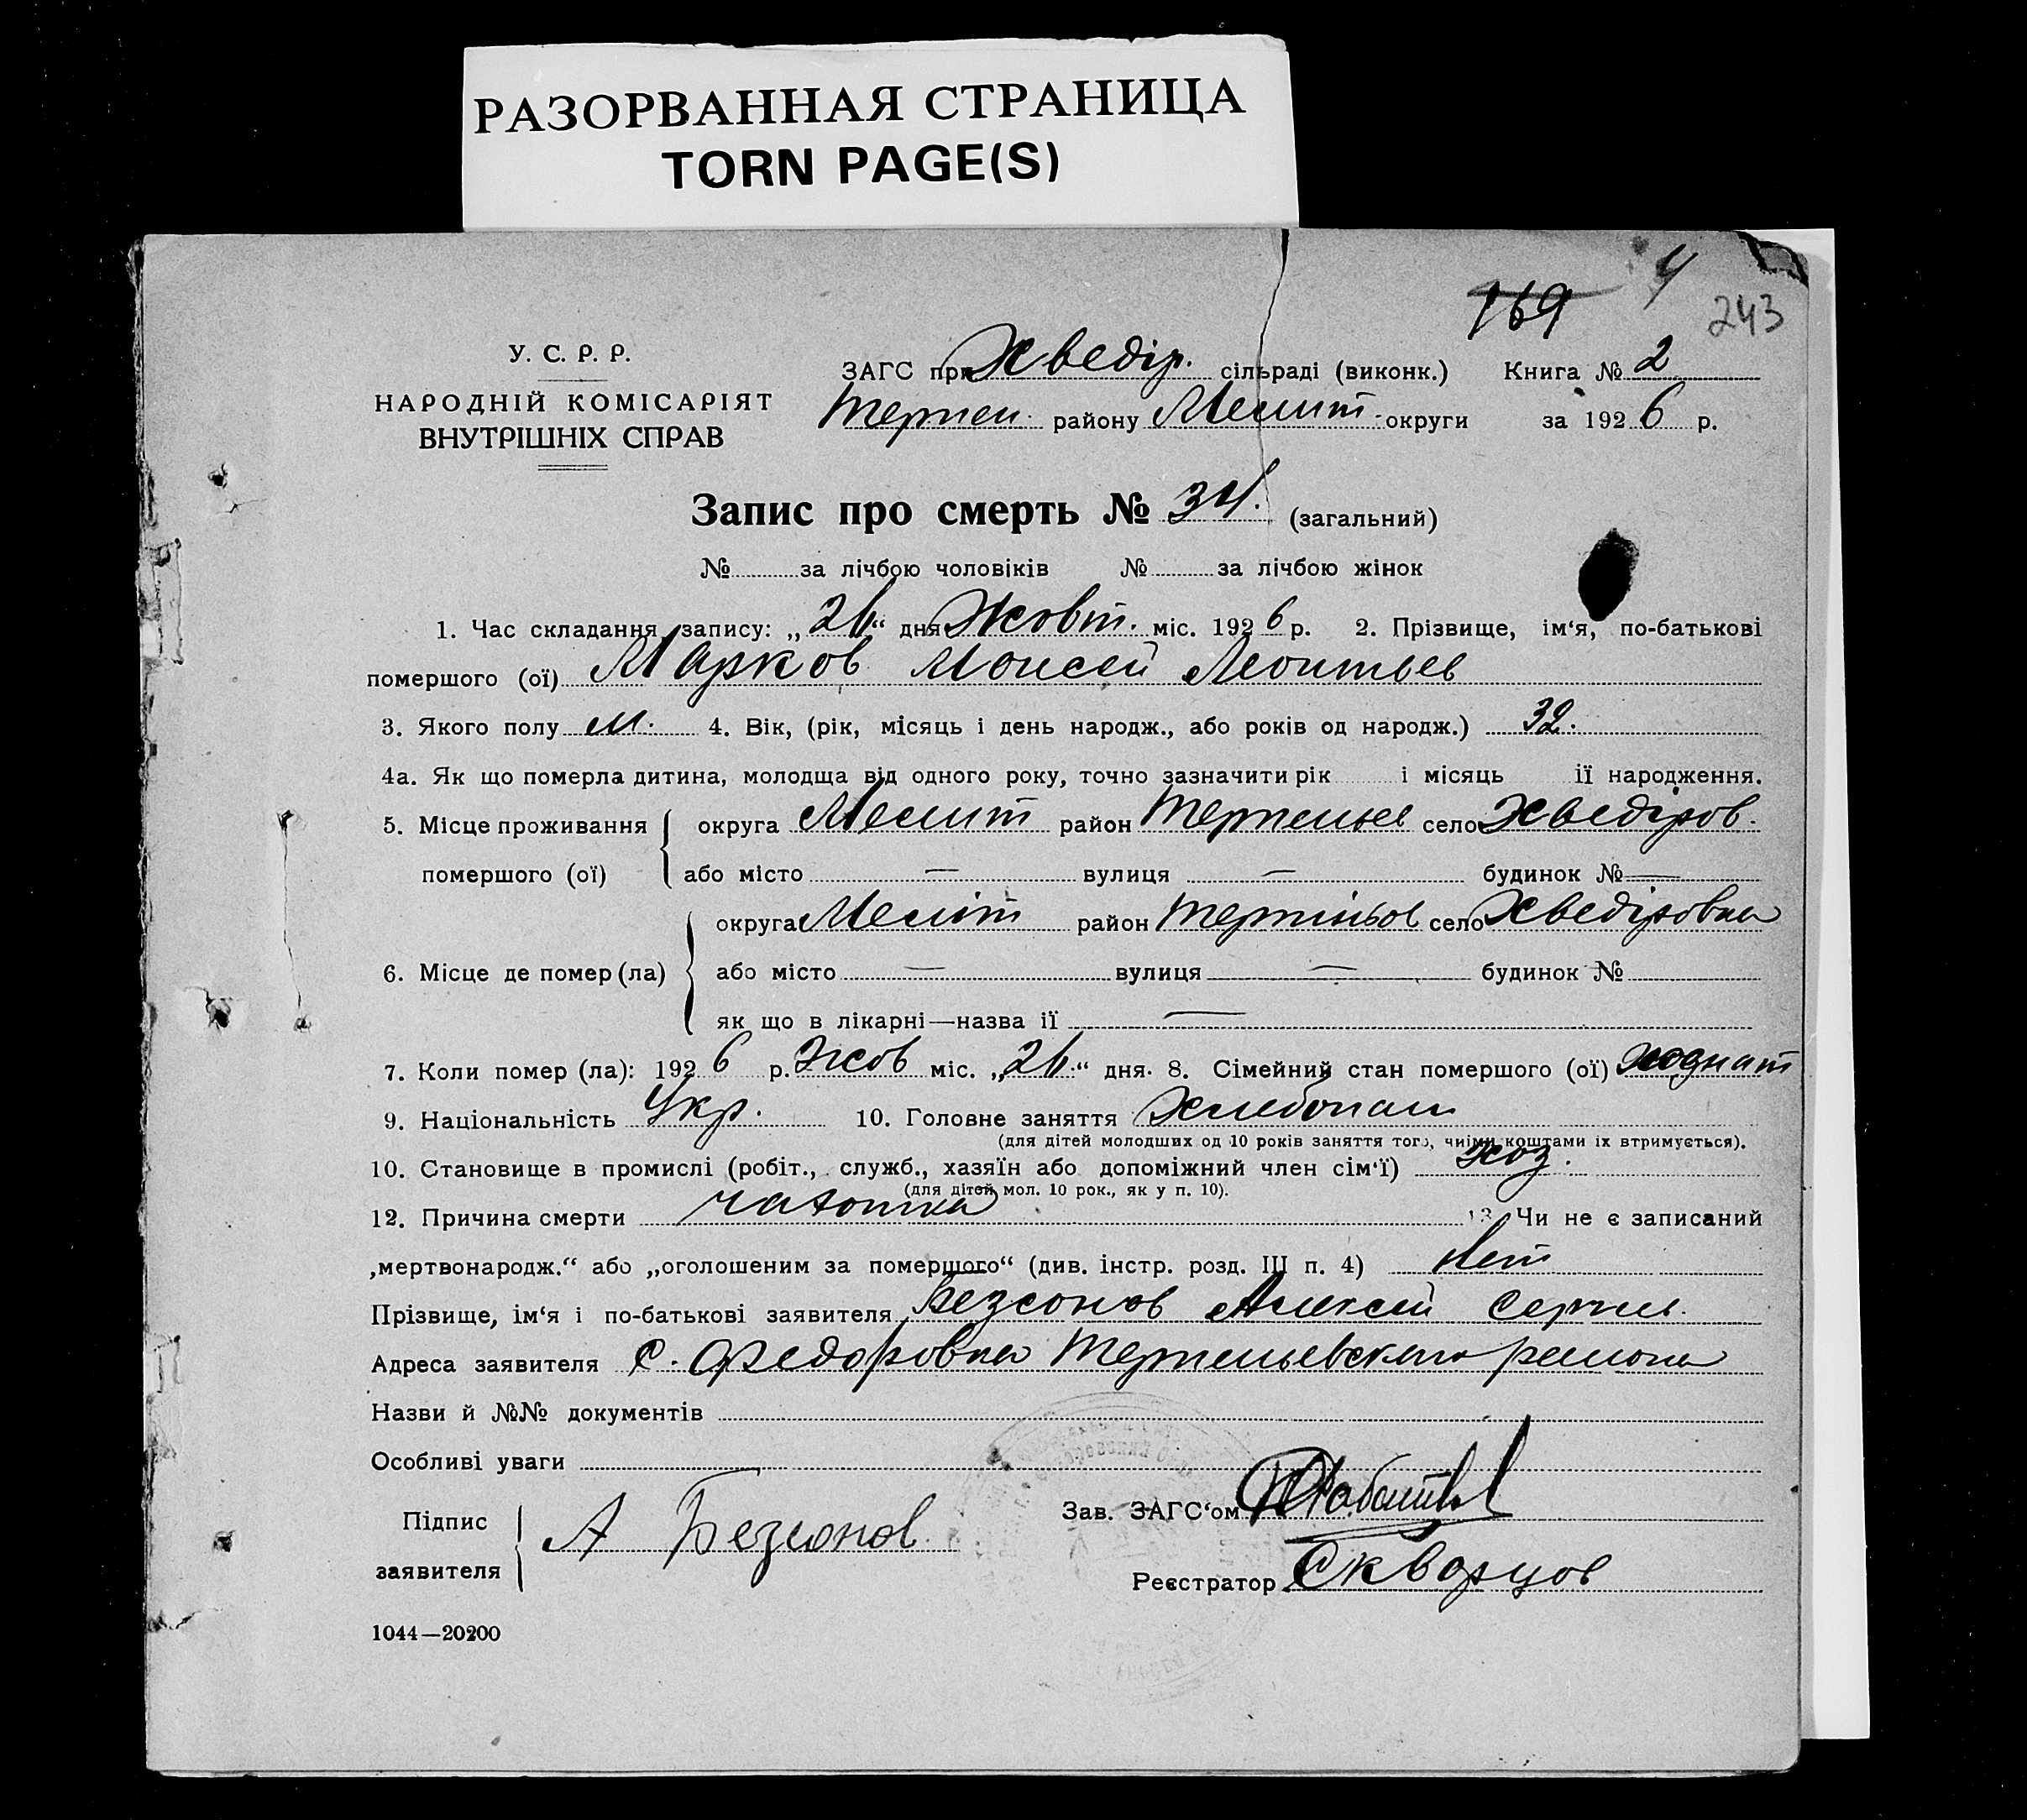 РАЗОРВАННАЯ СТРАНИЦА
TORN PAGE(S)
4
169
243
У. С. Р. Р.
НАРОДНІЙ КОМІСАРІЯТ
ВНУТРІШНІХ СПРАВ
ЗАГС при Хведір. сільраді (виконк.) Книга № 2
Терпен. району Мелит. округи за 1926 р.
Запис про смерть № 34. (загальний)
№ за лічбою чоловіків № за лічбою жінок
1. Час складання запису: „26“ дня Жовт. міс. 1926 р. 2. Прізвище, ім‘я, по-батькові
помершого (ої) Марков Моисей Леонтьев
3. Якого полу м. 4. Вік, (рік, місяць і день народж., або років од народж.) 32.
4а. Як що померла дитина, молодща від одного року, точно зазначити рік і місяць її народження.
5. Місце проживання помершого (ої) округа Мелит район Терпенье село Хведіров.
або місто — вулиця — будинок № —
6. Місце де помер (ла) округа Меліт район Терпіньов село Хведіровка
або місто — вулиця — будинок №
як що в лікарні—назва її —
7. Коли помер (ла): 1926 р. Жов міс. „26“ дня. 8. Сімейний стан помершого (ої)
9. Національність Укр. 10. Головне заняття Хлебопаш
(для дітей молодших од 10 років заняття того, чиїми коштами їх втримується).
10. Становище в промислі (робіт., служб., хазяїн або допоміжний член сім‘ї) хоз.
(для дітей мол. 10 рок., як у п. 10).
12. Причина смерти чахотка 13. Чи не є записаний
„мертвонародж.“ або „оголошеним за помершого“ (див. інстр. розд. III п. 4) Нет
Прізвище, ім‘я і по-батькові заявителя Безсонов Алексей Сергее.
Адреса заявителя с. Федоровка Терпеньевского района
Назви й №№ документів
Особливі уваги
Підпис заявителя А Безсонов.
Зав. ЗАГС‘ом
Реєстратор Скворцов
1044—20200